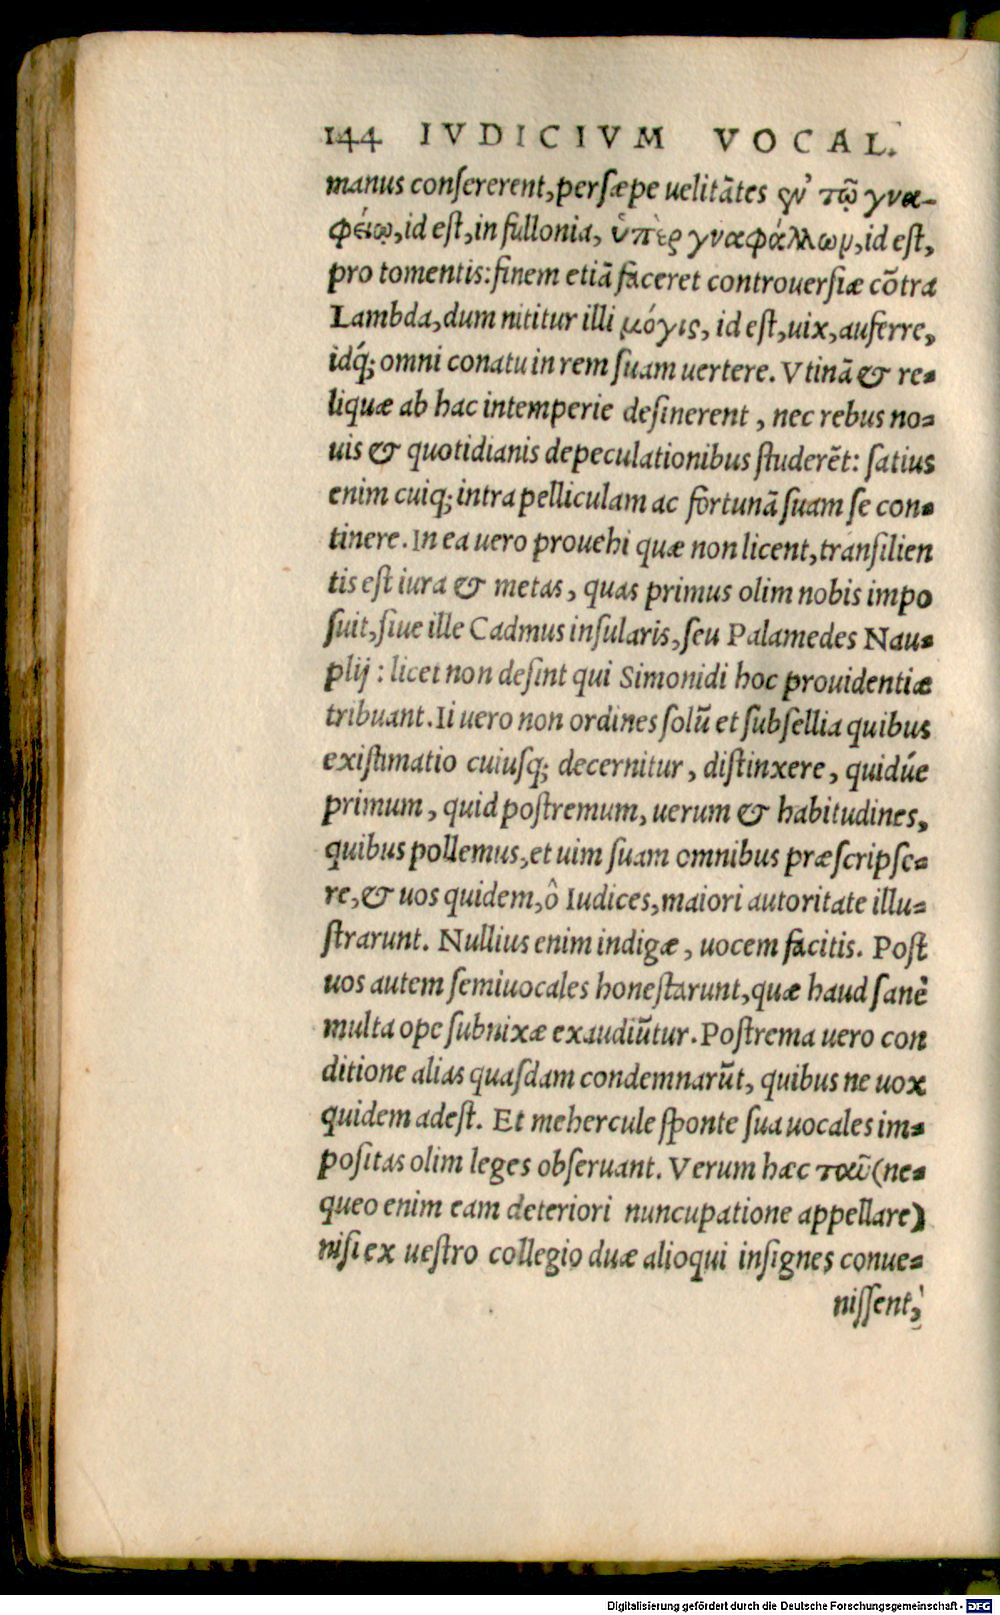 144 IVDICIVM VOCAL.
manus conſererent, perſæpe uelitātes ἐν τῷ γνα-
φείῳ, id eſt, in fullonia, ὑπὲρ γναφάλλωμ, id eſt,
pro tomentis: finem etiā faceret controuerſiæ cōtra
Lambda, dum nititur illi μόγις, id eſt, uix, auferre,
idq́; omni conatu in rem ſuam uertere. Vtinā & re-
liquæ ab hac intemperie deſinerent, nec rebus no-
uis & quotidianis depeculationibus ſtuderēt: ſatius
enim cuiq; intra pelliculam ac fortunā ſuam ſe con-
tinere. In ea uero prouehi quæ non licent, tranſilien
tis eſt iura & metas, quas primus olim nobis impo
ſuit, ſiue ille Cadmus inſularis, ſeu Palamedes Nau-
plij: licet non deſint qui Simonidi hoc prouidentiæ
tribuant. Ii uero non ordines ſolū et ſubſellia quibus
exiſtimatio cuiuſq; decernitur, diſtinxere, quidúe
primum, quid poſtremum, uerum & habitudines,
quibus pollemus, et uim ſuam omnibus præſcripſe-
re, & uos quidem, ô Iudices, maiori autoritate illu-
ſtrarunt. Nullius enim indigæ, uocem facitis. Poſt
uos autem ſemiuocales honeſtarunt, quæ haud ſanè
multa ope ſubnixæ exaudiūtur. Poſtrema uero con
ditione alias quaſdam condemnarūt, quibus ne uox
quidem adeſt. Et mehercule ſponte ſua uocales im-
poſitas olim leges obſeruant. Verum hæc ταῦ (ne-
queo enim eam deteriori nuncupatione appellare)
niſi ex ueſtro collegio duæ alioqui inſignes conue-
niſſent,
Digitalisierung gefördert durch die Deutsche Forschungsgemeinschaft - DFG